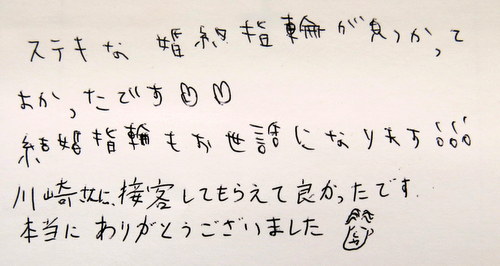 ステキな 婚約指輪が見つかって
よかったです♡♡
結婚指輪もお世話になります!!!
川崎さんに、接客してもらえて良かったです.
本当に ありがとうございました